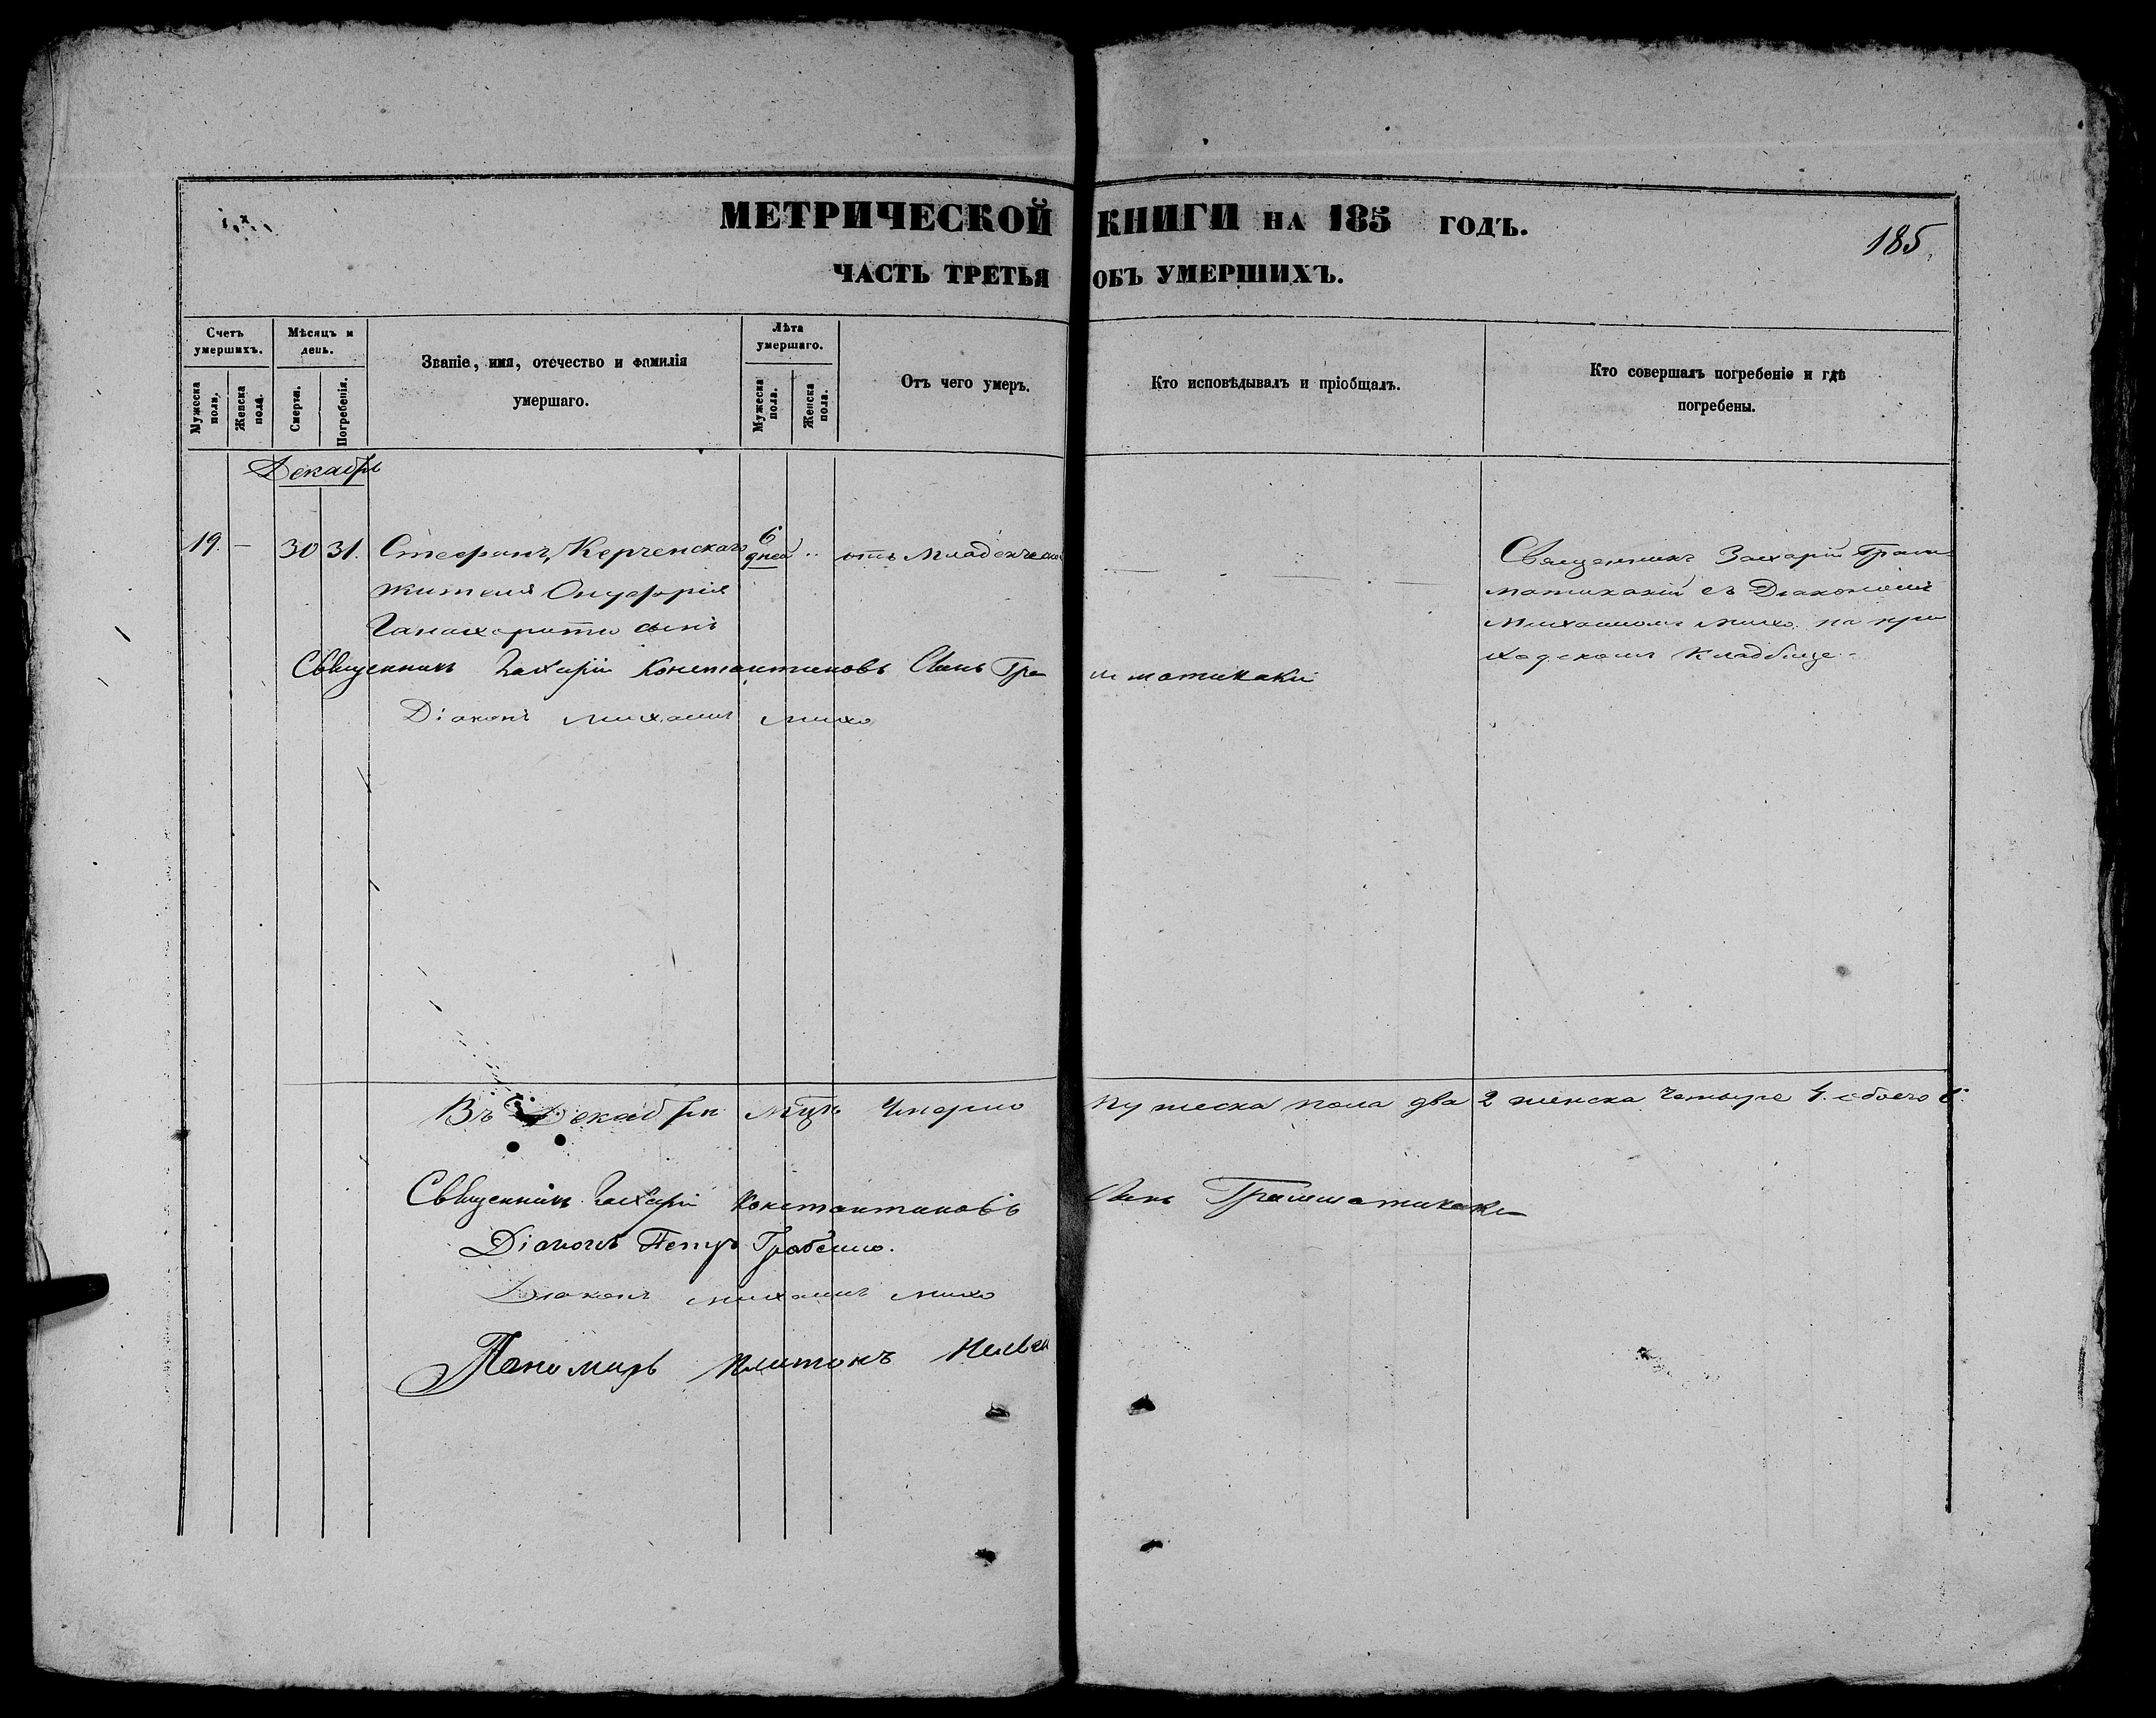 МЕТРИЧЕСКОЙ КНИГИ НА 185 ГОДЪ.
185.
ЧАСТЬ ТРЕТЬЯ ОБЪ УМЕРШИХЪ.
Счетъ умершихъ.
Мужеска пола.
Женска пола.
Мѣсяцъ и день.
Смерти.
Погребенія.
Званіе, имя, отечество и фамилія
умершаго.
Лѣта умершаго.
Мужеска пола.
Женска пола.
Отъ чего умеръ.
Кто исповѣдывалъ и пріобщалъ.
Кто совершалъ погребеніе и гдѣ
погребены.
Декабрь
19. — 30 31. Стефанъ, Керченскаго 6 дней отъ младенческо
жителя Онуфрія
сынъ
Священникъ Захарій Грам
матикакій съ Діакономъ
Михаиломъ Михо на при
ходскомъ кладбище
Священникъ Захарій Константиновъ Сынъ Грамматикаки
Діаконъ Михаилъ Михо
Въ Декабрѣ мцѣ Умерло мужеска пола два 2 женска четыре 4. обоего 6.
Священникъ Захарій Константиновъ Сынъ Грамматикаки
Діаконъ Петръ
Діаконъ Михаилъ Михо
Пономарь Платонъ